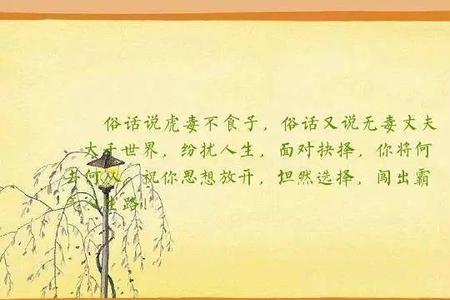 俗话说虎毒不食子，俗话又说无毒丈夫
大千世界，纷扰人生，面对抉择，你将何
去何从 祝你思想放开，坦然选择，闯出霸
路